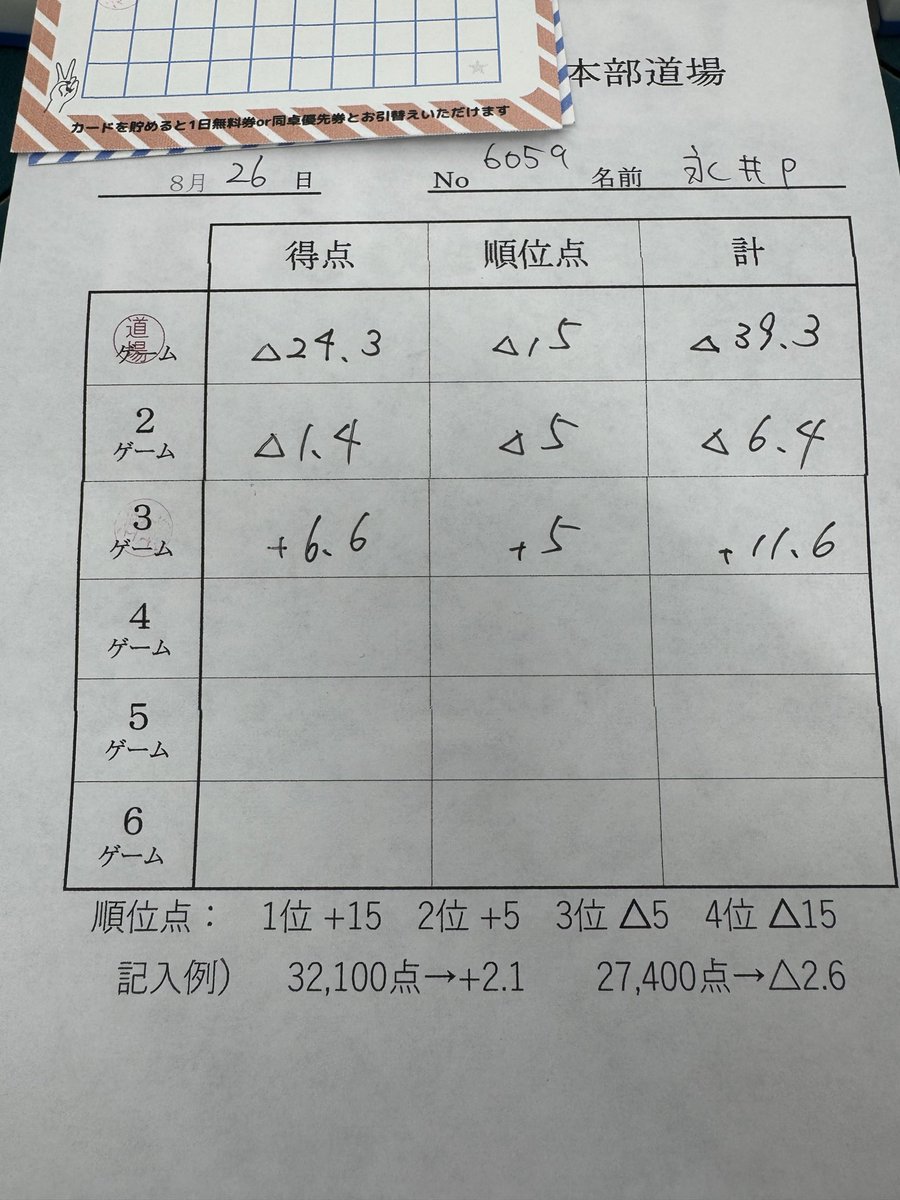 カードを貯めると1日無料券or同卓優先券とお引替えいただけます
本部道場
8月 26 日 No 6059 名前 永井P
得点 順位点 計
道場
ゲーム △24.3 △15 △39.3
2
ゲーム △1.4 △5 △6.4
3
ゲーム +6.6 +5 +11.6
4
ゲーム
5
ゲーム
6
ゲーム
順位点： 1位 +15 2位 +5 3位 △5 4位 △15
記入例） 32,100点→+2.1 27,400点→△2.6